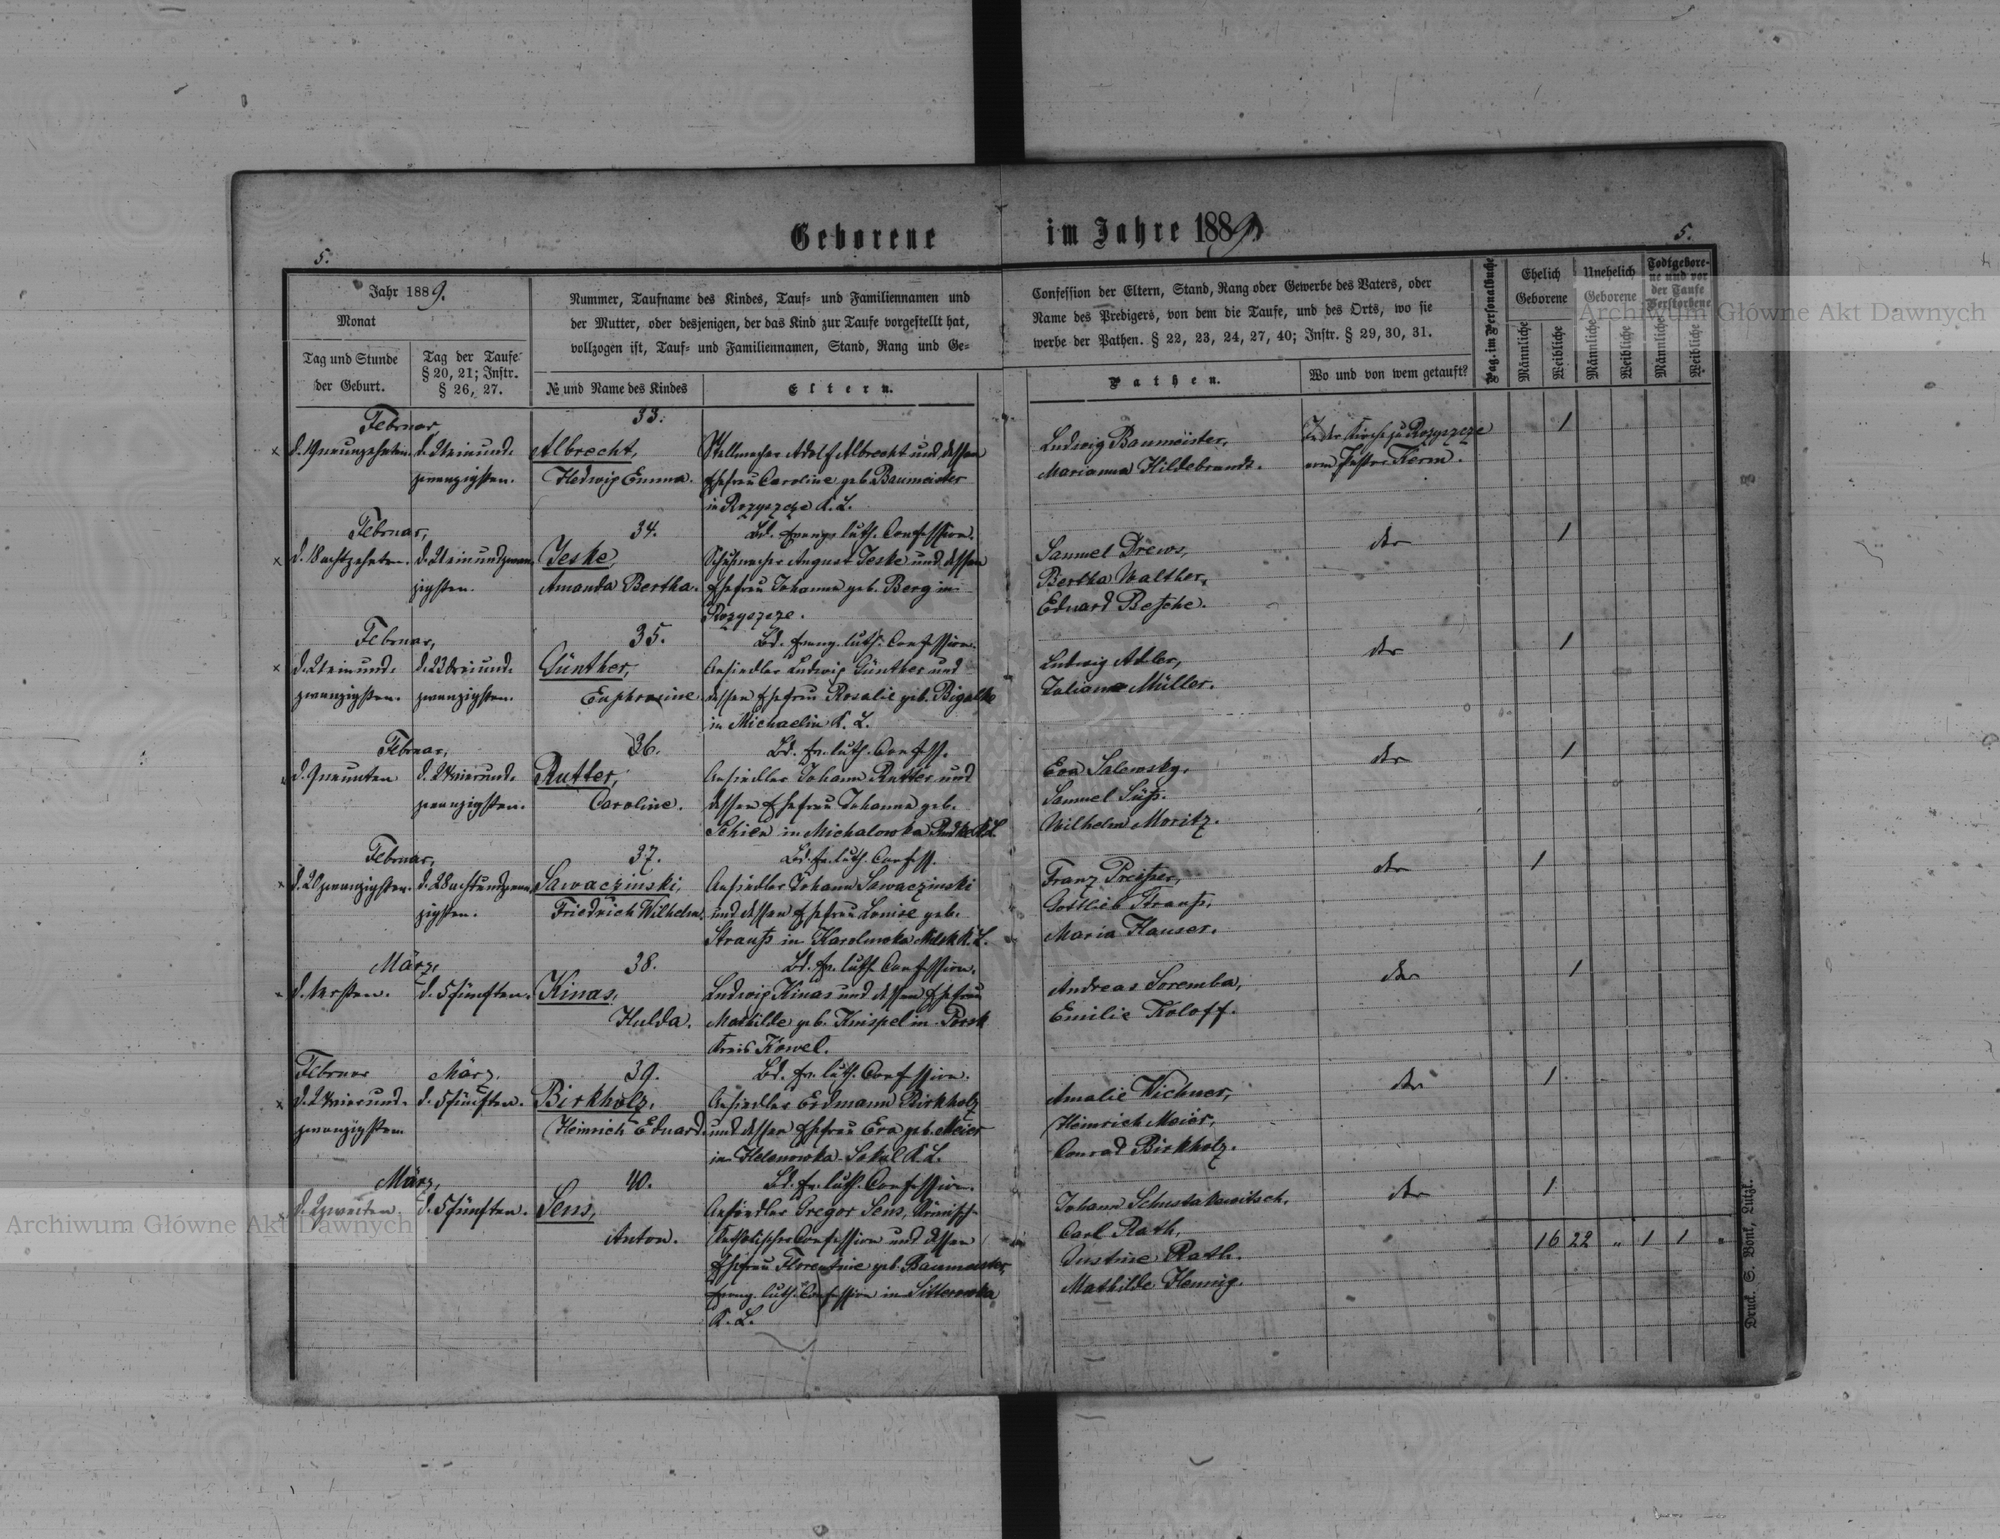 Geborene im Jahre 1889.
5.
5.
Jahr 1889.
Monat
Tag und Stunde
der Geburt.
Tag der Taufe
§ 20, 21; Instr.
§ 26, 27.
Nummer, Taufname des Kindes, Tauf- und Familiennamen und
der Mutter, oder desjenigen, der das Kind zur Taufe vorgestellt hat,
vollzogen ist, Tauf- und Familiennamen, Stand, Rang und Ge-
№ und Name des Kindes
Eltern.
Confession der Eltern, Stand, Rang oder Gewerbe des Vaters, oder
Name des Predigers, von dem die Taufe, und des Orts, wo sie
werbe der Pathen. § 22, 23, 24, 27, 40; Instr. § 29, 30, 31.
Pathen.
Wo und von wem getauft?
Pag. im Personalbuche
Ehelich
Geborene
Unehelich
Geborene
Todtgebore-
ne und vor
der Taufe
Verstorbene
Männliche
Weibliche
Männliche
Weibliche
Männliche
Weibliche
Archiwum Główne Akt Dawnych
Februar
33.
d. 19 neunzehnten
d. 21 einund-
zwanzigsten.
Albrecht,
Hedwig Emma.
Stellmacher Adolf Albrecht und dessen
Ehefrau Caroline geb. Baumeister
in Rozyszcze K. L.
Ludwig Baumeister,
Marianna Hildebrandt.
In der Kirche zu Rozyszcze
vom Pastor Kerm.
1
Februar,
34.
Bd. Evang. luth. Confession.
d. 18 achtzehnten.
d. 21 einundzwan-
zigsten.
Jeske,
Amanda Bertha.
Schuhmacher August Jeske und dessen
Ehefrau Johanna geb. Berg in
Rozyszcze.
Samuel Drews,
Bertha Walther,
Eduard Besche.
der
1
Februar,
35.
Bd. Evang. luth. Confession.
d. 21 einund-
zwanzigsten.
d. 23 dreiund-
zwanzigsten.
Günther,
Euphrosine
Ansiedler Ludwig Günther und
dessen Ehefrau Rosalie geb. Bigalke
in Michaelin K. L.
Ludwig Adler,
Juliane Müller.
der
1
Februar,
36.
Bd. Ev. luth. Confess.
d. 9 neunten
d. 24 vierund-
zwanzigsten.
Rutter,
Caroline.
Ansiedler Johann Rutter und
dessen Ehefrau Johanna geb.
Schien in Michalowka Rudka K. L.
Eva Salewsky,
Samuel Süß.
Wilhelm Moritz.
der
1
Februar,
37.
Bd. Ev. luth. Confess.
d. 20 zwanzigsten.
d. 28 achtundzwan-
zigsten.
Sawaczinski,
Friedrich Wilhelm.
Ansiedler Johann Sawaczinski
und dessen Ehefrau Louise geb.
Strauß in Karolinowka K. L.
Franz Preißer,
Gottlieb Strauß,
Maria Hauser.
der
1
März,
38.
Bd. Ev. luth. Confession.
d. 1 ersten.
d. 5 fünften.
Kinas,
Hulda.
Ludwig Kinas und dessen Ehefrau
Mathilde geb. Knispel in Porsk
Kreis Kowel.
Andreas Soremba,
Emilie Koloff.
der
1
Februar
März,
39.
Bd. Ev. luth. Confession.
d. 24 vierund-
zwanzigsten
d. 5 fünften.
Birkholz,
Heinrich Eduard.
Ansiedler Erdmann Birkholz
und dessen Ehefrau Eva geb. Meier
in Helenowka-Sokul K. L.
Amalie Wichner,
Heinrich Meier,
Conrad Birkholz.
der
1
März,
40.
Bd. Ev. luth. Confession.
d. 2 zweiten
d. 5 fünften.
Sens,
Anton.
Ansiedler Gregor Sens, Römisch-
Katholischer Confession und dessen
Ehefrau Florentine geb. Baumeister,
Evang. luth. Confession in
K. L.
Johann
Carl Rath,
Justine Rath.
Mathilde Hennig.
der
1
16 22 „ 1 1 „
Archiwum Główne Akt Dawnych
Druck. S. Bonk, Lutzk.